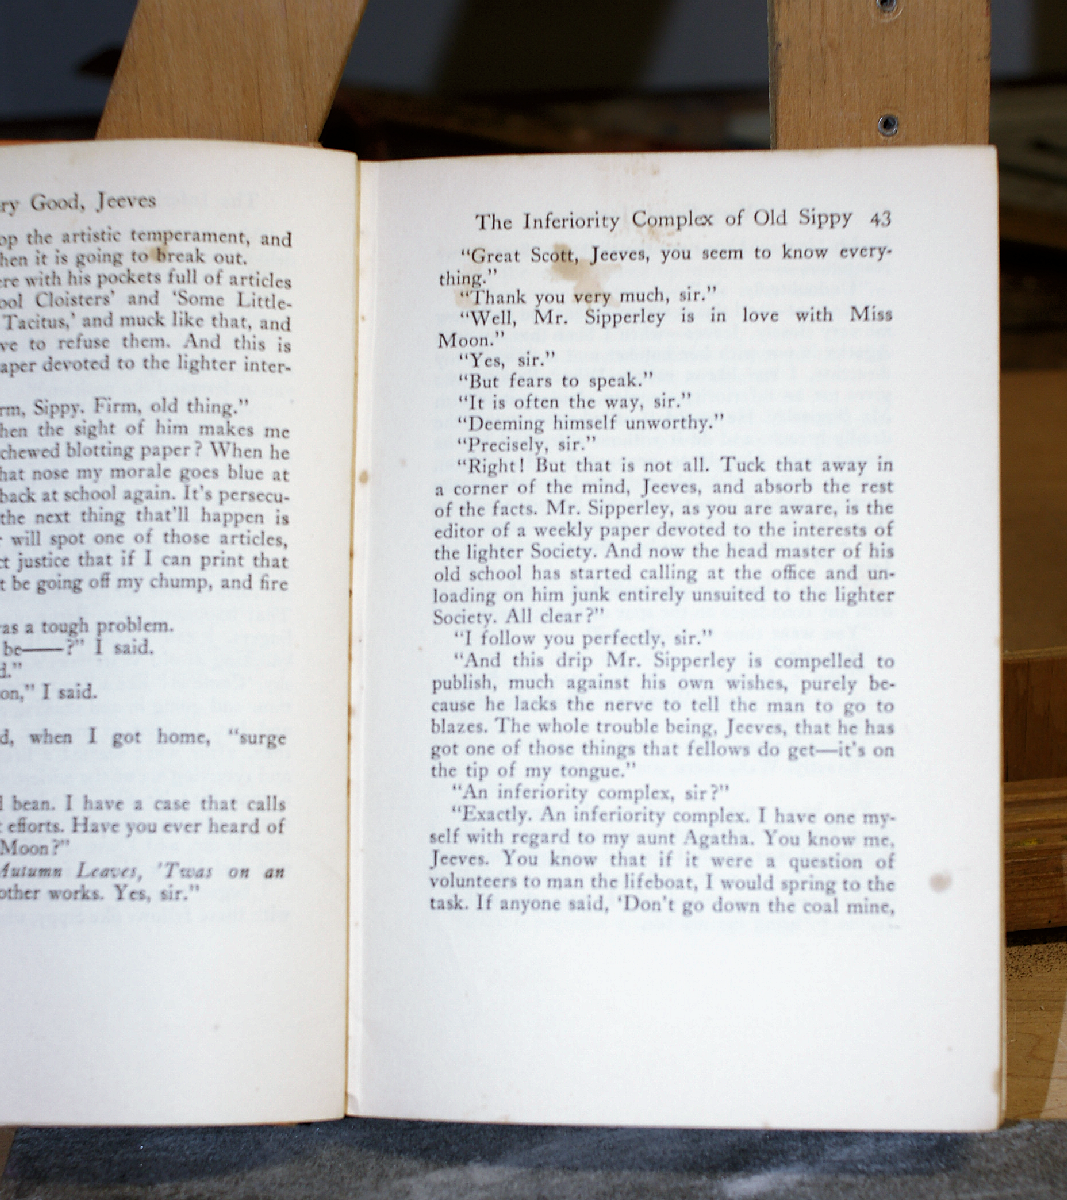 ry Good, Jeeves
op the artistic temperament, and
hen it is going to break out.
ere with his pockets full of articles
ool Cloisters' and 'Some Little-
Tacitus,' and muck like that, and
ve to refuse them. And this is
aper devoted to the lighter inter-
rm, Sippy. Firm, old thing."
hen the sight of him makes me
chewed blotting paper? When he
hat nose my morale goes blue at
back at school again. It's persecu-
the next thing that'll happen is
will spot one of those articles,
ct justice that if I can print that
t be going off my chump, and fire
as a tough problem.
be——?" I said.
d."
on," I said.
d, when I got home, "surge
d bean. I have a case that calls
t efforts. Have you ever heard of
Moon?"
Autumn Leaves, 'Twas on an
other works. Yes, sir."
The Inferiority Complex of Old Sippy 43
"Great Scott, Jeeves, you seem to know every-
thing."
"Thank you very much, sir."
"Well, Mr. Sipperley is in love with Miss
Moon."
"Yes, sir."
"But fears to speak."
"It is often the way, sir."
"Deeming himself unworthy."
"Precisely, sir."
"Right! But that is not all. Tuck that away in
a corner of the mind, Jeeves, and absorb the rest
of the facts. Mr. Sipperley, as you are aware, is the
editor of a weekly paper devoted to the interests of
the lighter Society. And now the head master of his
old school has started calling at the office and un-
loading on him junk entirely unsuited to the lighter
Society. All clear?"
"I follow you perfectly, sir."
"And this drip Mr. Sipperley is compelled to
publish, much against his own wishes, purely be-
cause he lacks the nerve to tell the man to go to
blazes. The whole trouble being, Jeeves, that he has
got one of those things that fellows do get—it's on
the tip of my tongue."
"An inferiority complex, sir?"
"Exactly. An inferiority complex. I have one my-
self with regard to my aunt Agatha. You know me,
Jeeves. You know that if it were a question of
volunteers to man the lifeboat, I would spring to the
task. If anyone said, 'Don't go down the coal mine,